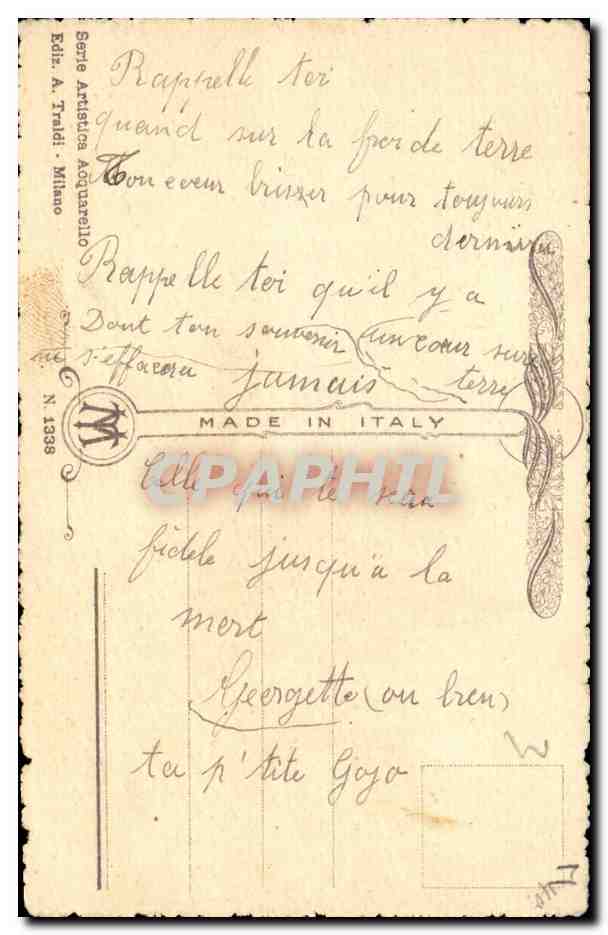 Rappelle toi
quand sur la froide terre
Ton coeur briszer pour toujours
dernièru
Rappelle toi qu'il y a
un coeur sure
terre
Dont ton souvenir
ne s'effacera jamais
MADE IN ITALY
Celle qui te sera
fidèle jusqu'ä la
mort
Georgette (ou bien)
ta p'tite Gojo
Serie Artistica Acquarello
Ediz. A. Traldi - Milano
N. 1338
CPAPHIL